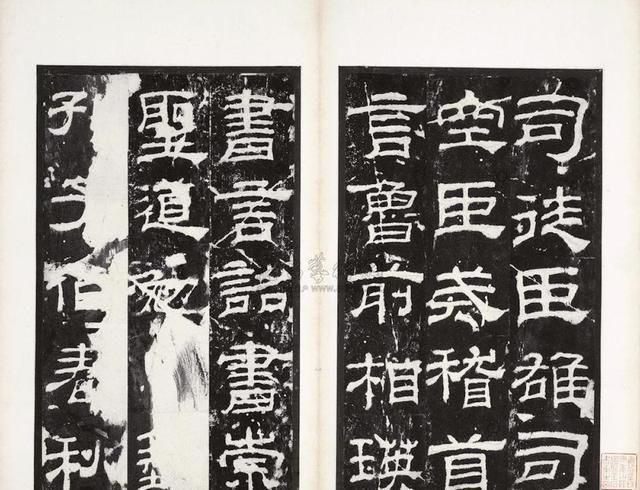 司徒臣雄司
空臣戒稽首
言魯前相瑛
書言詔書崇
聖道勉
子作春